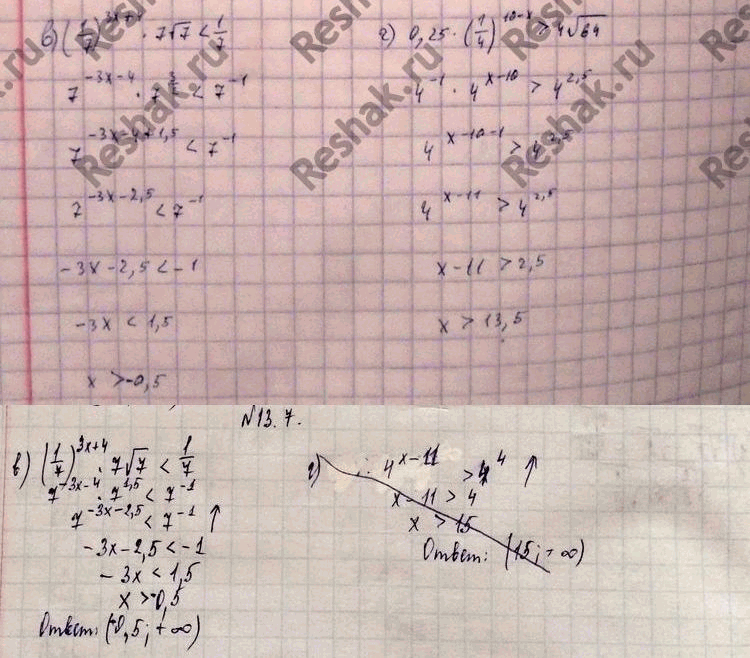 в) (1/7)^(3x+4) · 7√7 < 1/7
7^(-3x-4) · 7^(3/2) < 7^(-1)
7^(-3x-4+1,5) < 7^(-1)
7^(-3x-2,5) < 7^(-1)
-3x-2,5 < -1
-3x < 1,5
x > -0,5
г) 0,25 · (1/4)^(10-x) > 4√64
4^(-1) · 4^(x-10) > 4^(2,5)
4^(x-10-1) > 4^(2,5)
4^(x-11) > 4^(2,5)
x-11 > 2,5
x > 13,5
Reshak.ru
Reshak.ru
Reshak.ru
Reshak.ru
Reshak.ru
Reshak.ru
№13.7.
в) (1/7)^(3x+4) · 7√7 < 1/7
7^(-3x-4) · 7^(1,5) < 7^(-1)
7^(-3x-2,5) < 7^(-1) ↑
-3x-2,5 < -1
-3x < 1,5
x > -0,5
Ответ: (-0,5; +∞)
г) 4^(x-11) > 4^4 ↑
x-11 > 4
x > 15
Ответ: (15; +∞)